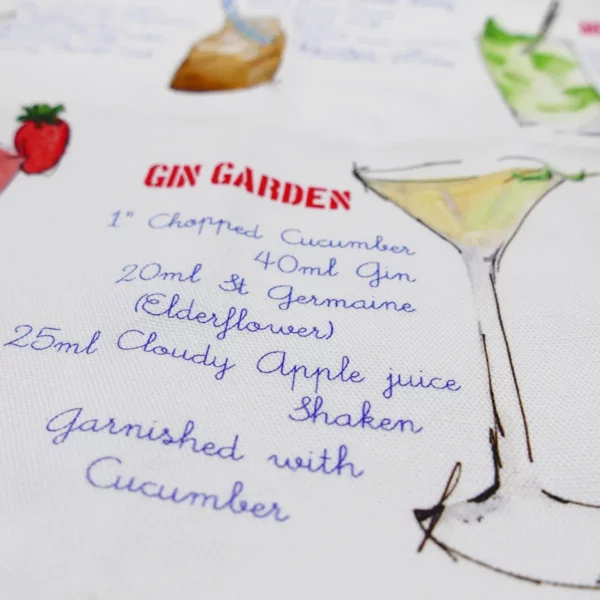 GIN GARDEN
1" Chopped Cucumber
40ml Gin
20ml St Germaine
(Elderflower)
25ml Cloudy Apple juice
Shaken
Garnished with
Cucumber